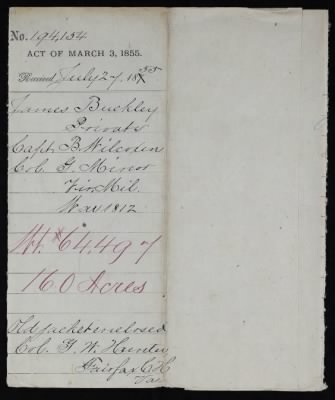 No. 194,154
ACT OF MARCH 3, 1855.
Received July 27, 1855
James Buckley
Private
Capt. B. Wilcoxen
Col. G. Minor
Vir. Mil.
War 1812
Wt. 64.497
160 Acres
Old jacket enclosed
Col. G. W. Hunter
Fairfax C. H.
Va